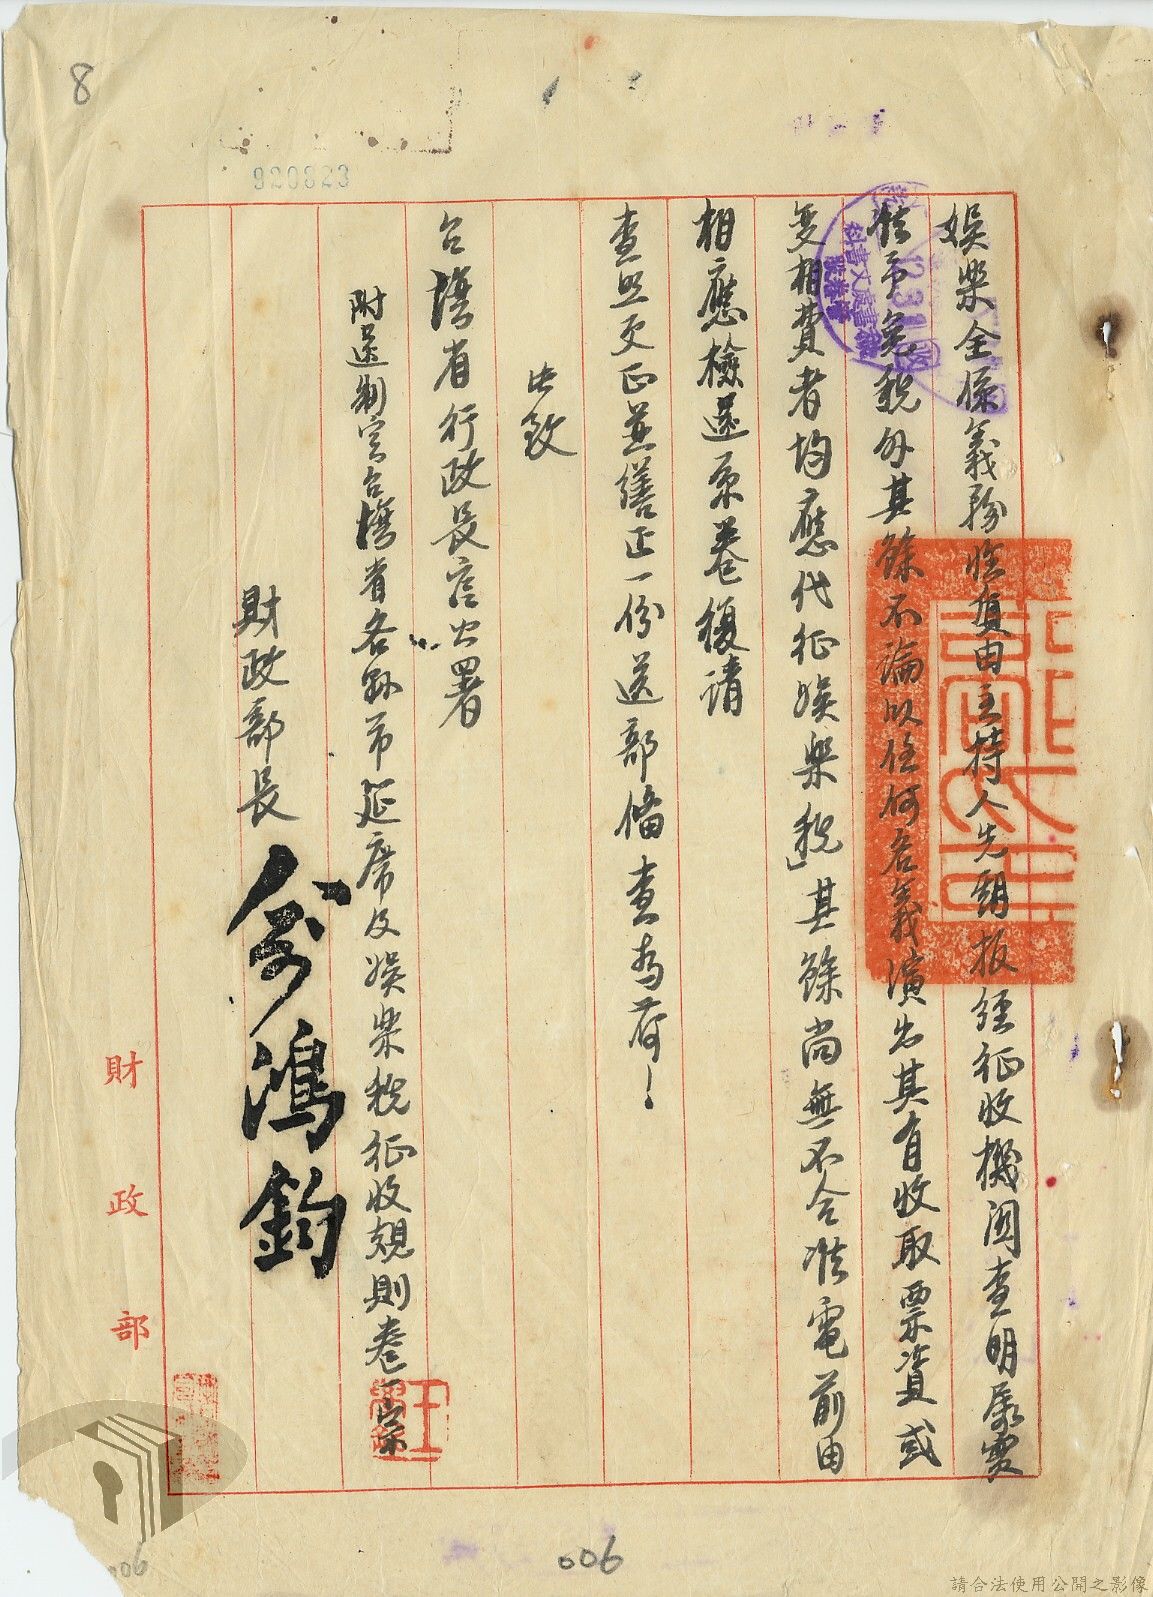 8
920823
娛樂全係義務性質由主持人先期報經征收機關查明屬實
准予免稅外其餘不論以任何名義演出其有收取票資或
變相費者均應代征娛樂稅」其餘尚無不合准電前由
相應檢還原卷復請
查照更正並繕正一份送部備查為荷!
此致
台灣省行政長官公署
附還制定台灣省各縣市筵席及娛樂稅征收規則卷一宗
財政部長 俞鴻鈞
財政部
12.31
006
006
請合法使用公開之影像